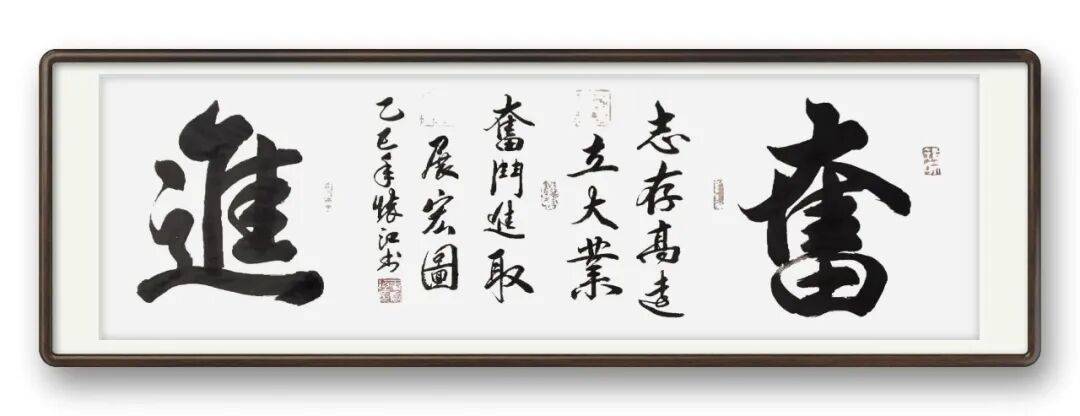 奮
志存高遠
立大業
奮鬥進取
展宏圖
乙巳年懷江书
進